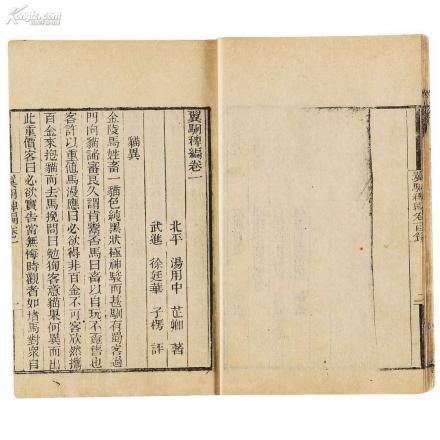 孔夫子旧书网
翼駉稗編卷一
北平 湯用中 芷卿 著
武進 徐廷華 子楞 評
貓異
金陵馬姓畜一貓色純黑狀極神駿而甚馴有蜀客過
門向貓諦審良久謂肯鬻否馬曰畜以自玩不意售也
客許以重值馬漫應曰必欲得非百金不可客欣然攜
百金來抱貓而去馬挽問曰勉徇客意貓果何異而出
此重價客曰必欲實告當無悔時觀者如堵馬對眾自
翼駉稗編卷一
一
翼駉稗編卷一目錄